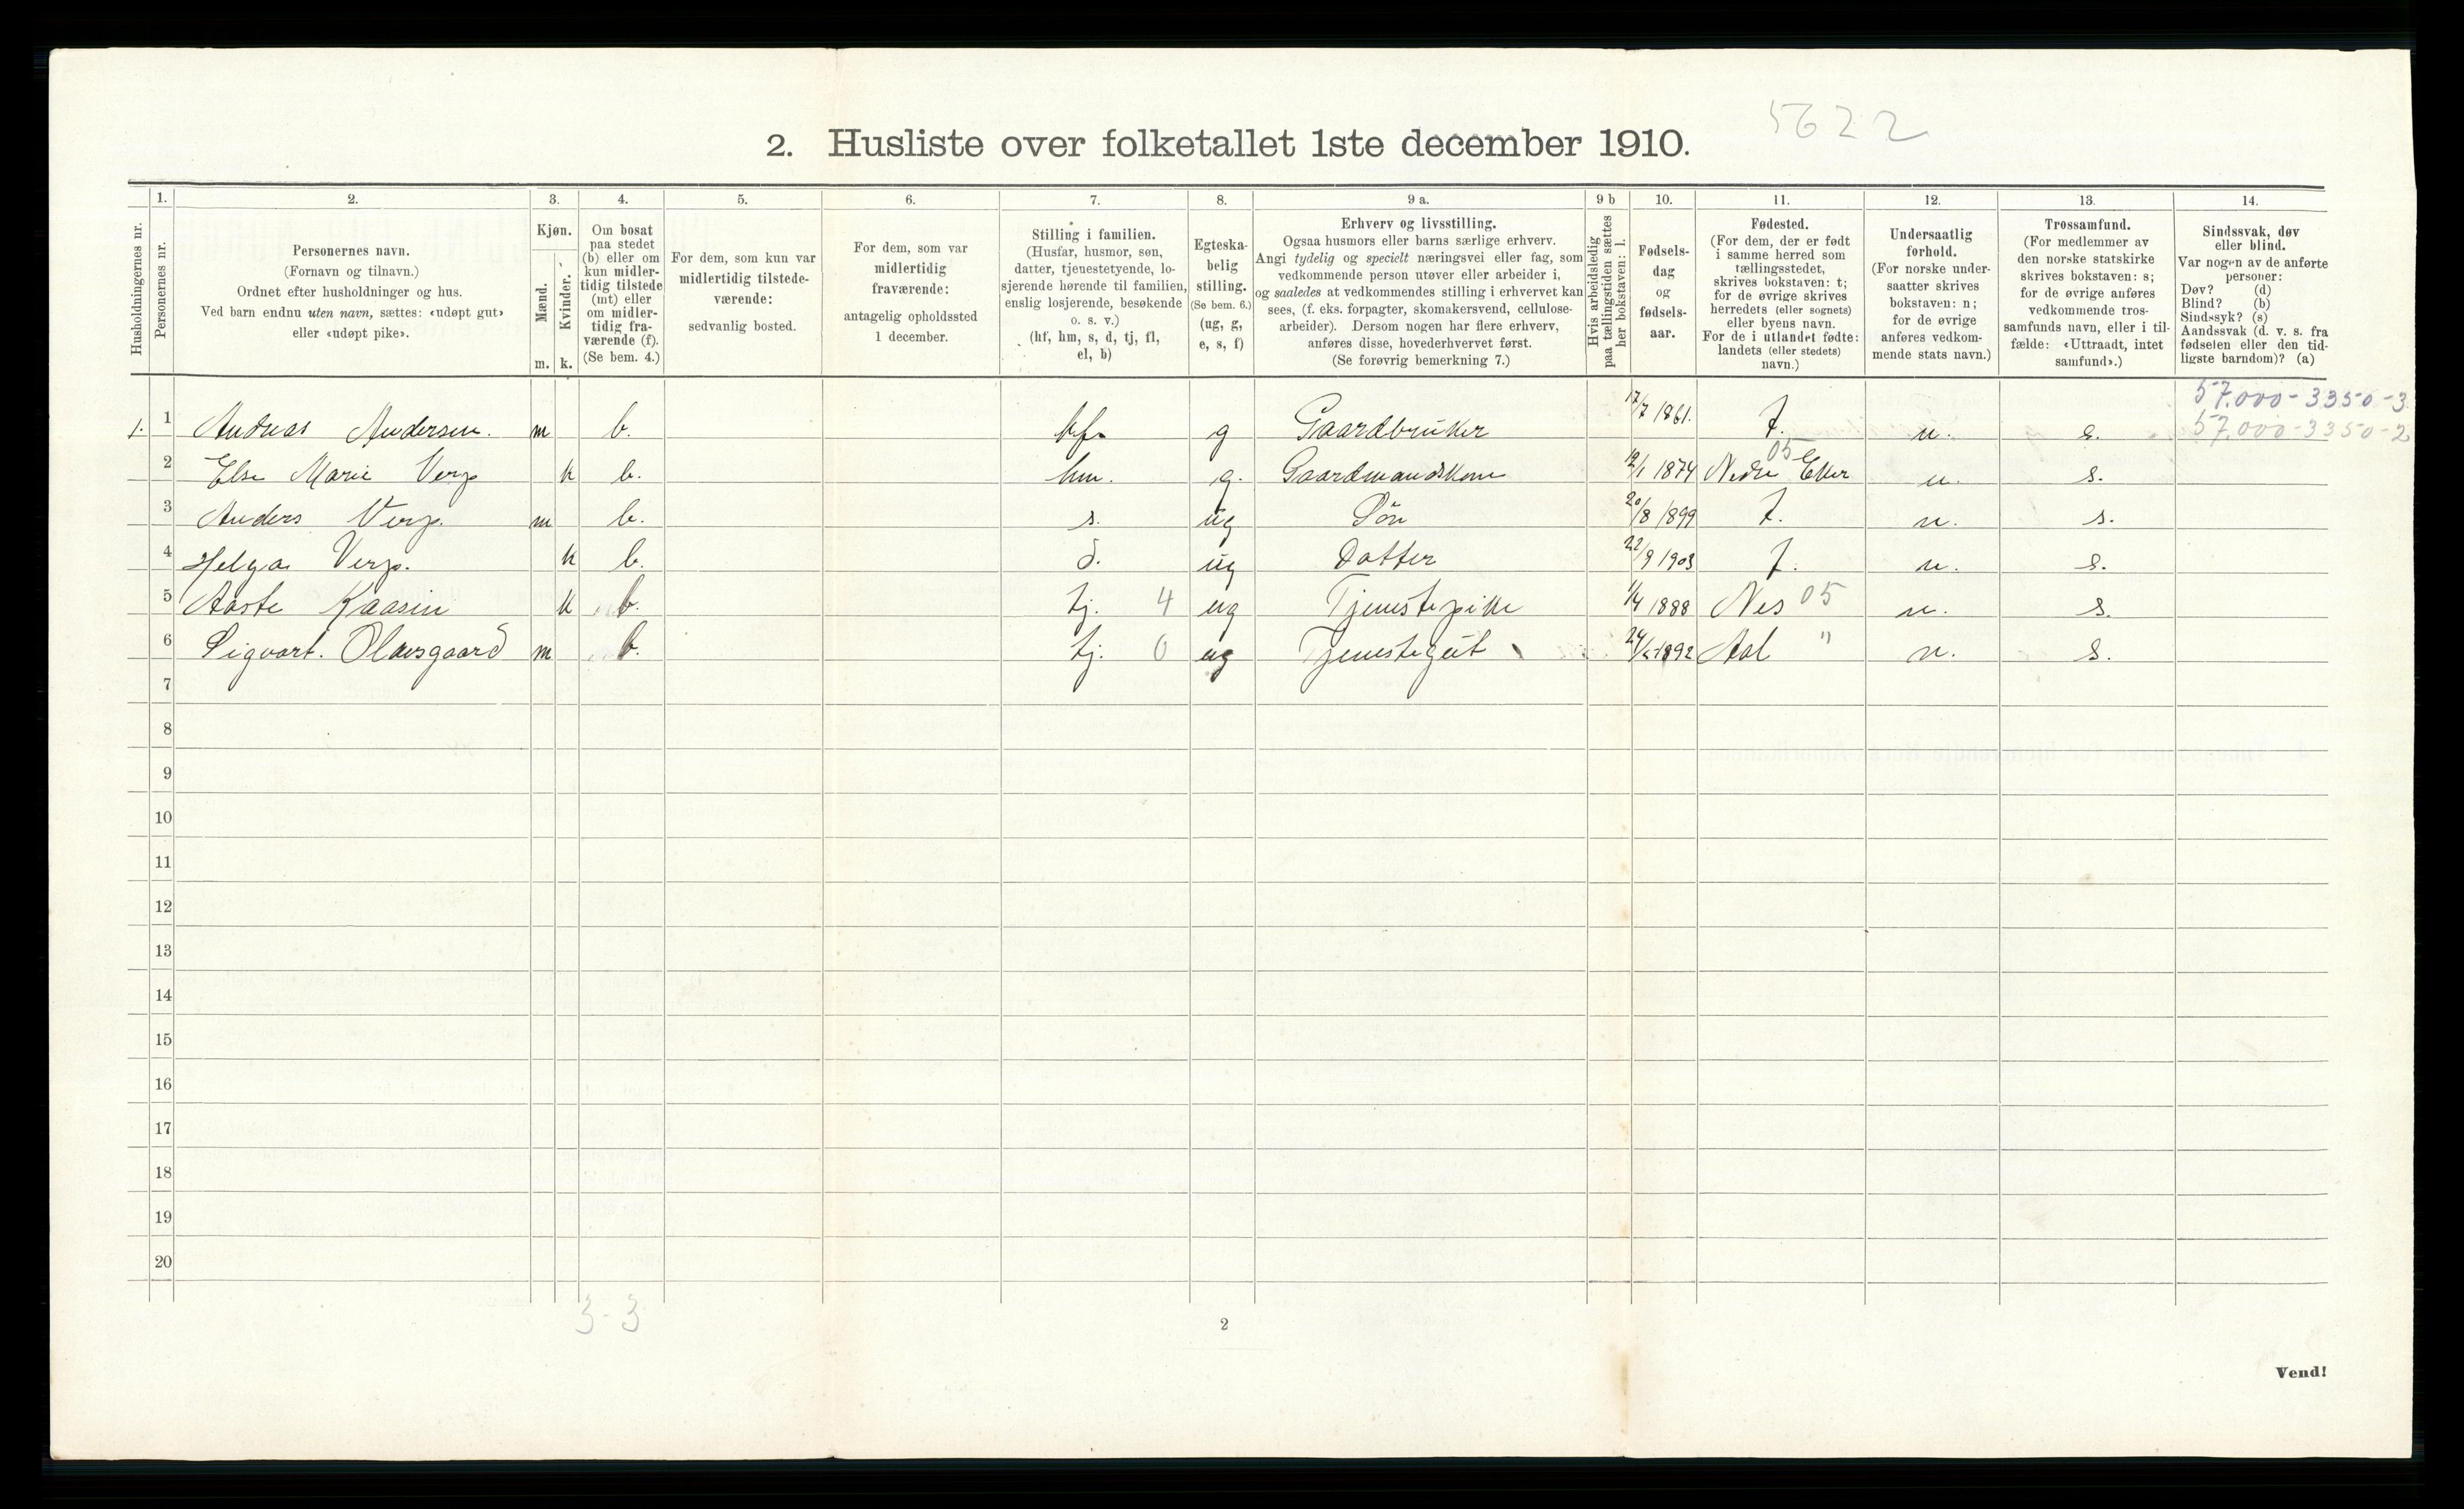 5622
2. Husliste over folketallet 1ste december 1910.
Husholdningernes nr.
1.
Personernes nr.
2.
Personernes navn.
(Fornavn og tilnavn.)
Ordnet efter husholdninger og hus.
Ved barn endnu uten navn, sættes: «udøpt gut»
eller «udøpt pike».
3.
Kjøn.
Mænd.
m.
Kvinder.
k.
4.
Om bosat
paa stedet
(b) eller om
kun midler-
tidig tilstede
(mt) eller
om midler-
tidig fra-
værende (f).
(Se bem. 4.)
5.
For dem, som kun var
midlertidig tilstede-
værende:
sedvanlig bosted.
6.
For dem, som var
midlertidig
fraværende:
antagelig opholdssted
1 december.
7.
Stilling i familien.
(Husfar, husmor, søn,
datter, tjenestetyende, lo-
sjerende hørende til familien,
enslig losjerende, besøkende
o. s. v.)
(hf, hm, s, d, tj, fl,
el, b)
8.
Egteska-
belig
stilling.
(Se bem. 6.)
(ug, g,
e, s, f)
9 a.
Erhverv og livsstilling.
Ogsaa husmors eller barns særlige erhverv.
Angi tydelig og specielt næringsvei eller fag, som
vedkommende person utøver eller arbeider i,
og saaledes at vedkommendes stilling i erhvervet kan
sees, (f. eks. forpagter, skomakersvend, cellulose-
arbeider). Dersom nogen har flere erhverv,
anføres disse, hovederhvervet først.
(Se forøvrig bemerkning 7.)
9 b
Hvis arbeidsledig
paa tællingstiden sættes
her bokstaven: l.
10.
Fødsels-
dag
og
fødsels-
aar.
11.
Fødested.
(For dem, der er født
i samme herred som
tællingsstedet,
skrives bokstaven: t;
for de øvrige skrives
herredets (eller sognets)
eller byens navn.
For de i utlandet fødte:
landets (eller stedets)
navn.)
12.
Undersaatlig
forhold.
(For norske under-
saatter skrives
bokstaven: n;
for de øvrige
anføres vedkom-
mende stats navn.)
13.
Trossamfund.
(For medlemmer av
den norske statskirke
skrives bokstaven: s;
for de øvrige anføres
vedkommende tros-
samfunds navn, eller i til-
fælde: «Uttraadt, intet
samfund».)
14.
Sindssvak, døv
eller blind.
Var nogen av de anførte
personer:
Døv? (d)
Blind? (b)
Sindssyk? (s)
Aandssvak (d. v. s. fra
fødselen eller den tid-
ligste barndom)? (a)
57.000-3350-3
1. 1 Andreas Andersen. m b. hf. g Gaardbruker 17/7 1861. t. n. s. 57.000-3350-2
2 Else Marie Verp k b. hm. g. Gaardmandskone 12/1 1874 Nedre Eker 05 n. s.
3 Anders Verp. m b. s. ug Søn 20/8 1899 t. n. s.
4 Helga Verp. k b. d. ug Datter 22/9 1903 t. n. s.
5 Aaste Kaasin k b. tj. 4 ug Tjenestepike 1/4 1888 Nes 05 n. s.
6 Sigvart. Olavsgaard m b. tj. 0 ug Tjenestegut 1892 Aal " n. s.
7
8
9
10
11
12
13
14
15
16
17
18
19
20
3-3
2
Vend!